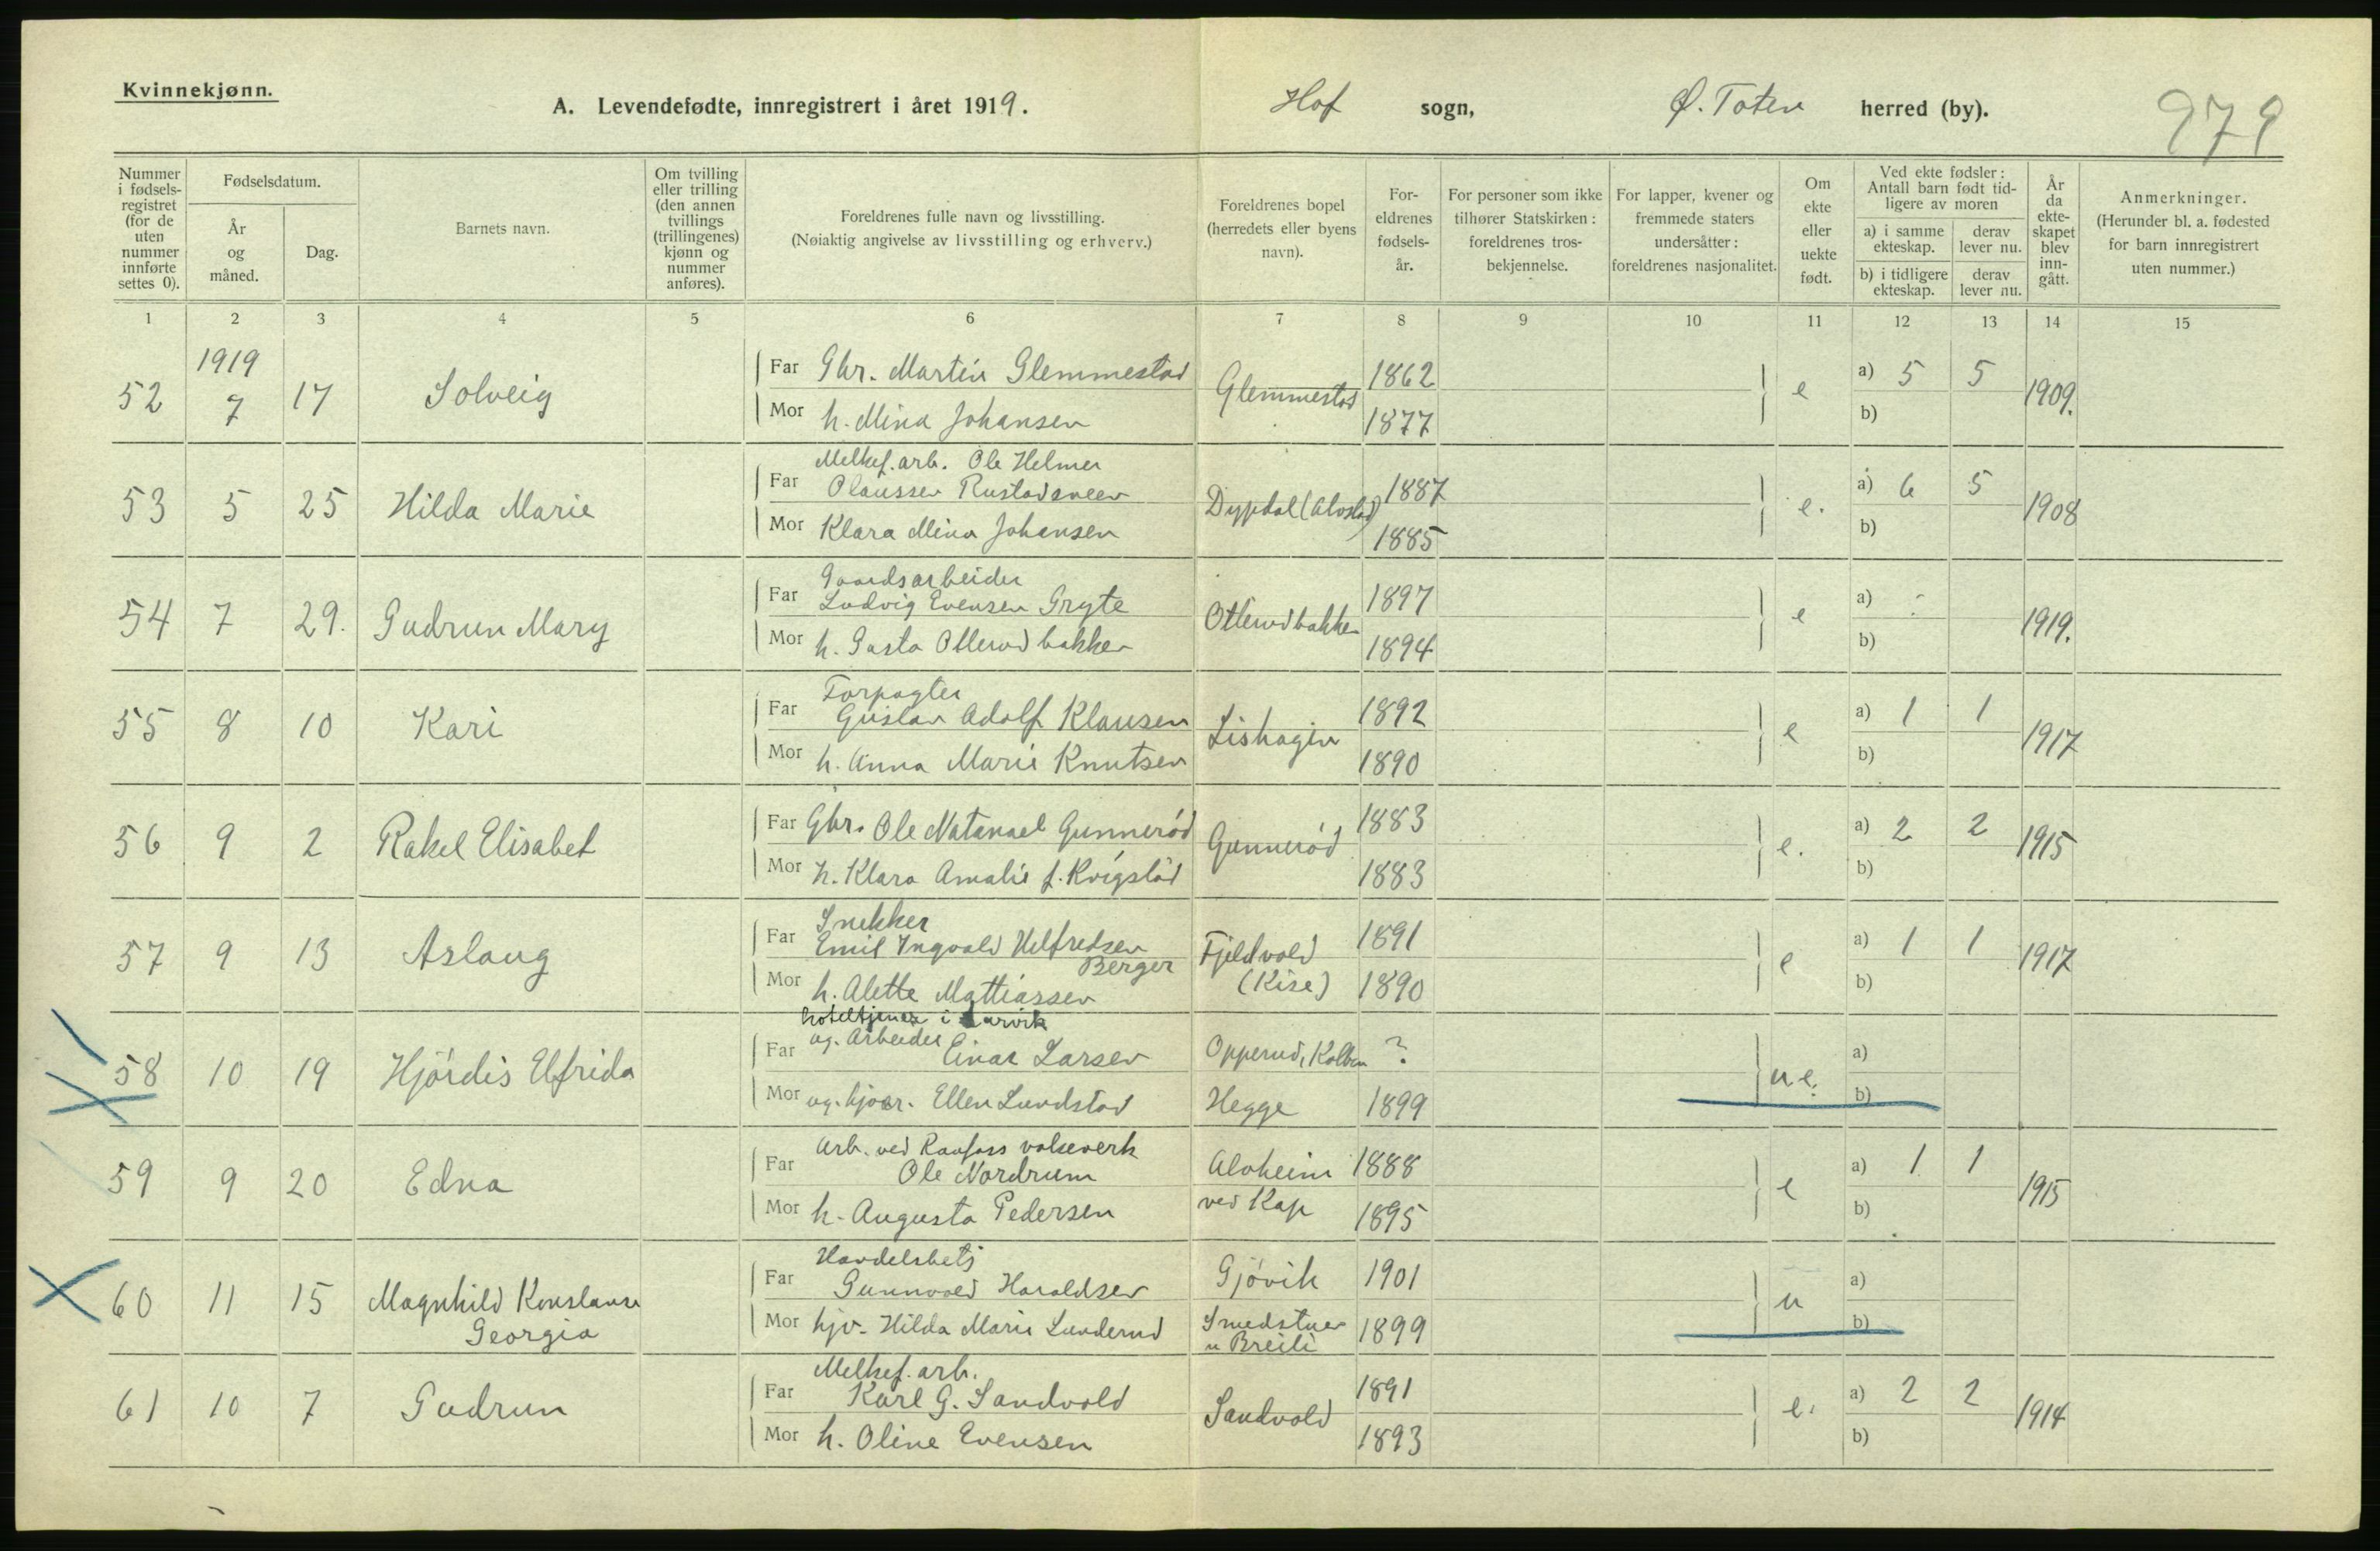 Kvinnekjønn.
A. Levendefødte, innregistrert i året 1919.
Hof sogn, Ø. Toten herred (by).
979
Nummer i fødselsregistret (for de uten nummer innførte settes 0).
Fødselsdatum.
År og måned.
Dag.
Barnets navn.
Om tvilling eller trilling (den annen tvillings (trillingenes) kjønn og nummer anføres).
Foreldrenes fulle navn og livsstilling.
(Nøiaktig angivelse av livsstilling og erhverv.)
Foreldrenes bopel (herredets eller byens navn).
Foreldrenes fødselsår.
For personer som ikke tilhører Statskirken: foreldrenes trosbekjennelse.
For lapper, kvener og fremmede staters undersåtter: foreldrenes nasjonalitet.
Om ekte eller uekte født.
Ved ekte fødsler: Antall barn født tidligere av moren
a) i samme ekteskap.
derav lever nu.
b) i tidligere ekteskap.
derav lever nu.
År da ekteskapet blev inngått.
Anmerkninger.
(Herunder bl. a. fødested for barn innregistrert uten nummer.)
1 2 3 4 5 6 7 8 9 10 11 12 13 14 15
1919
52 7 17 Solveig
Far Gbr. Martin Glemmestad 1862 a) 5 5
Glemmestad e 1909.
Mor h. Mina Johansen 1877 b)
53 5 25 Hilda Marie
Melkef. arb. Ole Helmer
Far Olaussen Rustadsveen 1887 a) 6 5
Dypdal (Alvstad) e. 1908
Mor Klara Mina Johansen 1885 b)
54 7 29. Gudrun Mary
Gaardsarbeider
Far Ludvig Evensen Gryte 1897 a)
Otterudbakken e 1919.
Mor h. Gusta Otterudbakken 1894 b)
55 8 10 Kari
Forpagter
Far Gustav Adolf Klausen 1892 a) 1 1
Lishagen e 1917
Mor h. Anna Marie Knutsen 1890 b)
56 9 2 Rakel Elisabet
Far Gbr. Ole Natanael Gunnerød 1883 a) 2 2
Gunnerød e. 1915
Mor h. Klara Amalie f. Kvigstad 1883 b)
57 9 13 Aslaug
Snekker
Far Emil Ingvald Helfredsen Berger 1891 a) 1 1
Fjeldvold (Kise) e 1917
Mor h. Alette Mattiassen 1890 b)
58 10 19 Hjördis Elfrida
hoteltjener i Larvik
Far ug. Arbeider Einar Larsen Opperud, Kolbu ? a)
ue.
Mor ug. hjver. Ellen Lundstad Hegge 1899 b)
59 9 20 Edna
Arb. ved Raufoss valseverk
Far Ole Nordrum Alvheim 1888 a) 1 1
e 1915
Mor h. Augusta Pedersen ved Kap 1895 b)
60 11 15 Magnhild Konstanse Georgia
Handelsbetj
Far Gunnvald Haraldsen Gjövik 1901 a)
u
Mor hjv. Hilda Marie Lunderud Smedstuen u Breili 1899 b)
61 10 7 Gudrun
Melkef. arb.
Far Karl G. Sandvold 1891 a) 2 2
Sandvold e. 1914
Mor h. Oline Evensen 1893 b)